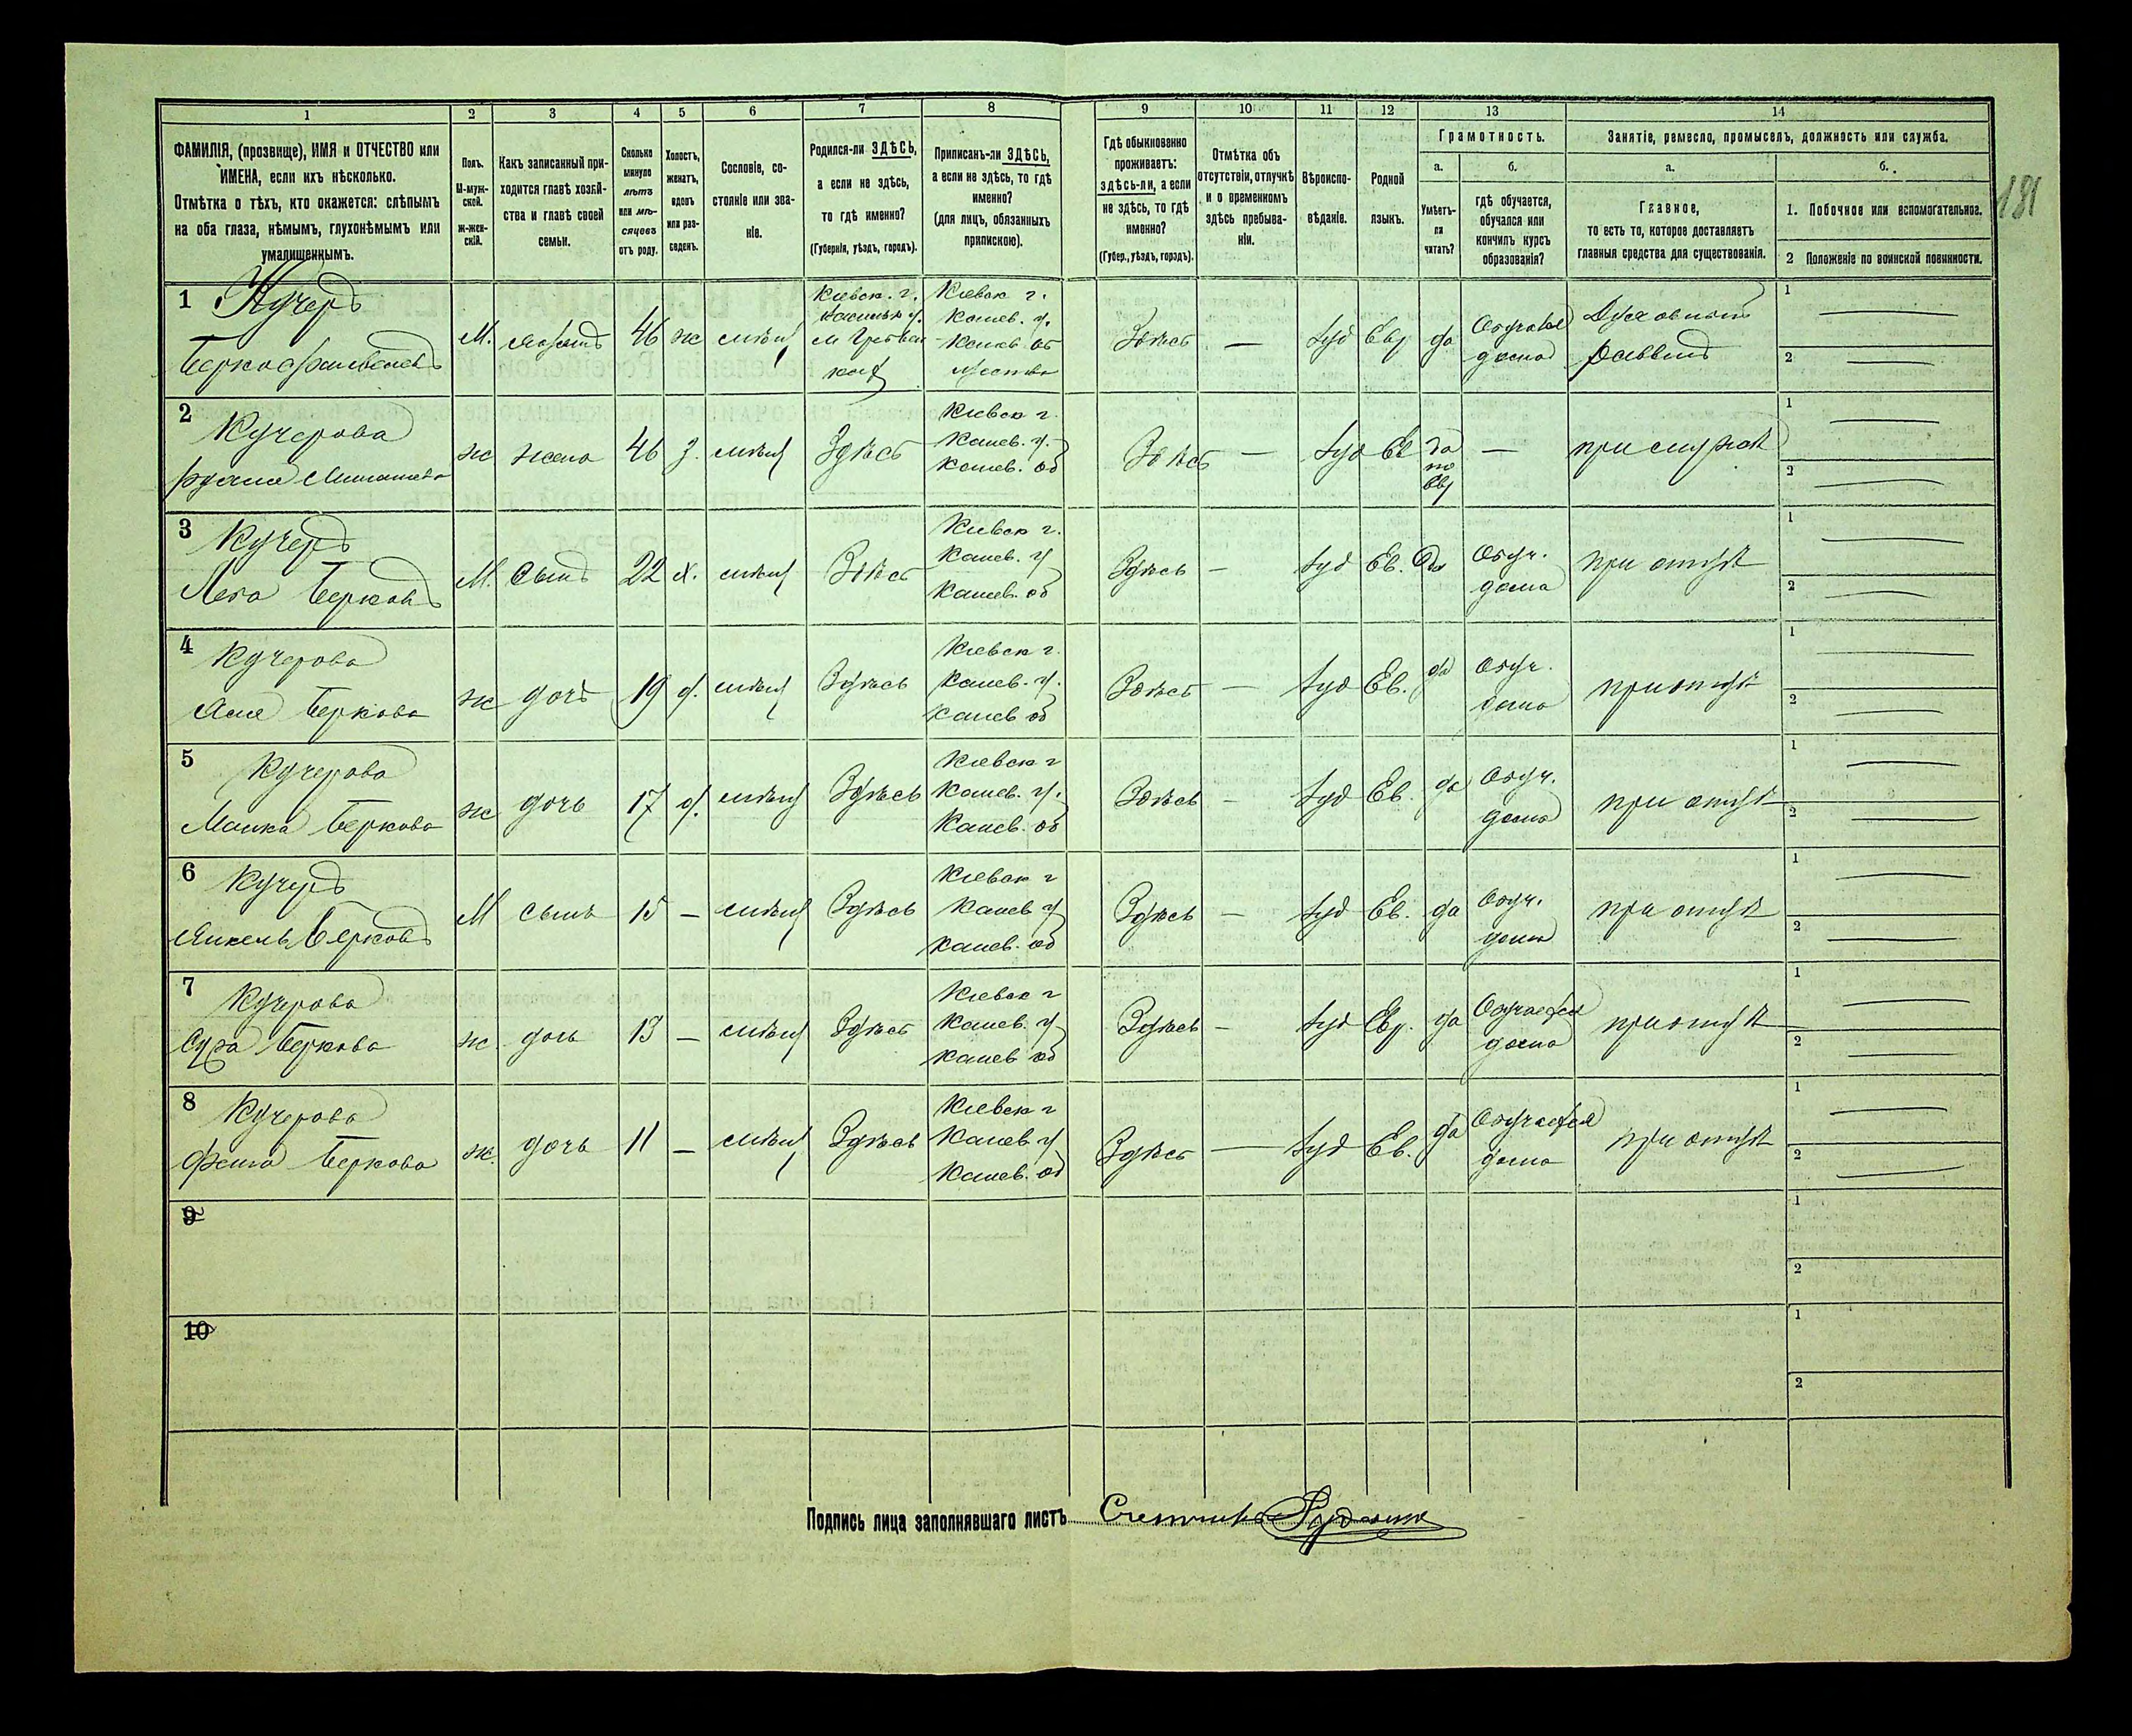 1 2 3 4 5 6 7 8 9 10 11 12 13 14
ФАМИЛІЯ, (прозвище), ИМЯ и ОТЧЕСТВО или
ИМЕНА, если ихъ нѣсколько.
Отмѣтка о тѣхъ, кто окажется: слѣпымъ
на оба глаза, нѣмымъ, глухонѣмымъ или
умалишеннымъ.
Полъ.
М-муж-
ской.
ж-жен-
скій.
Какъ записанный при-
ходится главѣ хозяй-
ства и главѣ своей
семьи.
Сколько
минуло
лѣтъ
или мѣ-
сяцевъ
отъ роду.
Холостъ,
женатъ,
вдовъ
или раз-
веденъ.
Сословіе, со-
стояніе или зва-
ніе.
Родился-ли ЗДѢСЬ,
а если не здѣсь,
то гдѣ именно?
(Губернія, уѣздъ, городъ).
Приписанъ-ли ЗДѢСЬ,
а если не здѣсь, то гдѣ
именно?
(для лицъ, обязанныхъ
припискою).
Гдѣ обыкновенно
проживаетъ:
здѣсь-ли, а если
не здѣсь, то гдѣ
именно?
(Губер., уѣздъ, городъ).
Отмѣтка объ
отсутствіи, отлучкѣ
и о временномъ
здѣсь пребыва-
ніи.
Вѣроиспо-
вѣданіе.
Родной
языкъ.
Грамотность.
а.
Умѣетъ-
ли
читать?
б.
гдѣ обучается,
обучался или
кончилъ курсъ
образованія?
Занятіе, ремесло, промыселъ, должность или служба.
а.
Главное,
то есть то, которое доставляетъ
главныя средства для существованія.
б.
1. Побочное или вспомогательное.
2 Положеніе по воинской повинности.
181
1 Кучеръ
М. 46 ж
Кіевск. г.
Кіевск г.
Канев. у.
Здѣсь — Іуд Евр да
дома
Духовный
Раввинъ
1 —
2 —
2 Кучерова
ж жена 46 з. Здѣсь
Кіевск г.
Канев. у.
Канев. об
Здѣсь — Іуд Ев да
по
Евр
—
при мужѣ
1 —
2 —
3 Кучеръ
Лейба Берковъ
М. сынъ 22 х. Здѣсь
Кіевск г.
Канев. у
Канев. об
Здѣсь — Іуд Ев. Да
Обуч.
дома
при отцѣ
1 —
2 —
4 Кучерова
Беркова
ж дочь 19 д. Здѣсь
Кіевск г.
Канев. у.
Канев об
Здѣсь — Іуд Ев. да
Обуч.
дома
при отцѣ
1 —
2 —
5 Кучерова
Беркова
ж дочь 17 д. Здѣсь
Кіевск г
Канев. у.
Канев. об
Здѣсь — Іуд Ев. да
Обуч.
дома
при отцѣ
1 —
2 —
6 Кучеръ
Янкель Берковъ
М сынъ 15 — Здѣсь
Кіевск г
Канев у
Канев. об
Здѣсь — Іуд Ев. да
Обуч.
дома
при отцѣ
1 —
2 —
7 Кучерова
Сура Беркова
ж. дочь 13 — Здѣсь
Кіевск г
Канев. у
Канев об
Здѣсь — Іуд Евр. да
Обучается
дома
при отцѣ
1 —
2 —
8 Кучерова
Фейга Беркова
ж. дочь 11 — Здѣсь
Кіевск г
Канев у
Канев. об
Здѣсь — Іуд Ев. да
Обучается
дома
при отцѣ
1 —
2 —
9
1
2
10
1
2
Подпись лица заполнявшаго листъ Счетчикъ